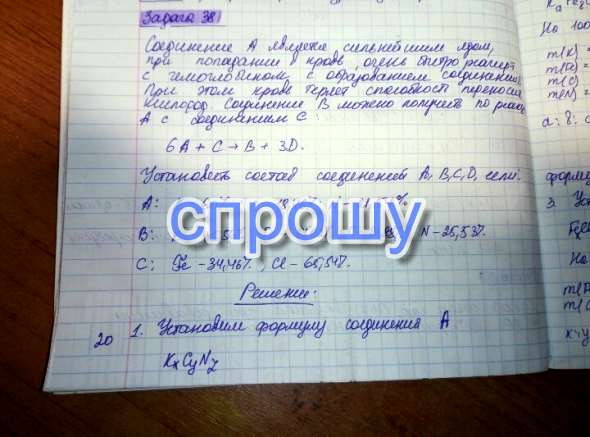 Задача 38
Соединение А является сильнейшим ядом,
при попадании в кровь очень быстро реагирует
с гемоглобином, с образованием соединения
При этом кровь теряет способность переносить
кислород. Соединение В можно получить по реак
А с соединением С:
6A + C → B + 3D.
Установить состав соединений А, В, С, D, если:
A:
B: N - 25,53%.
C: Fe - 34,46%, Cl - 65,54%.
спрошу
Решение:
20 1. Установим формулу соединения А
KxCyNz
Ка
На 100
m(K) =
m(C)
m(N) =
форму
3. Ус
На